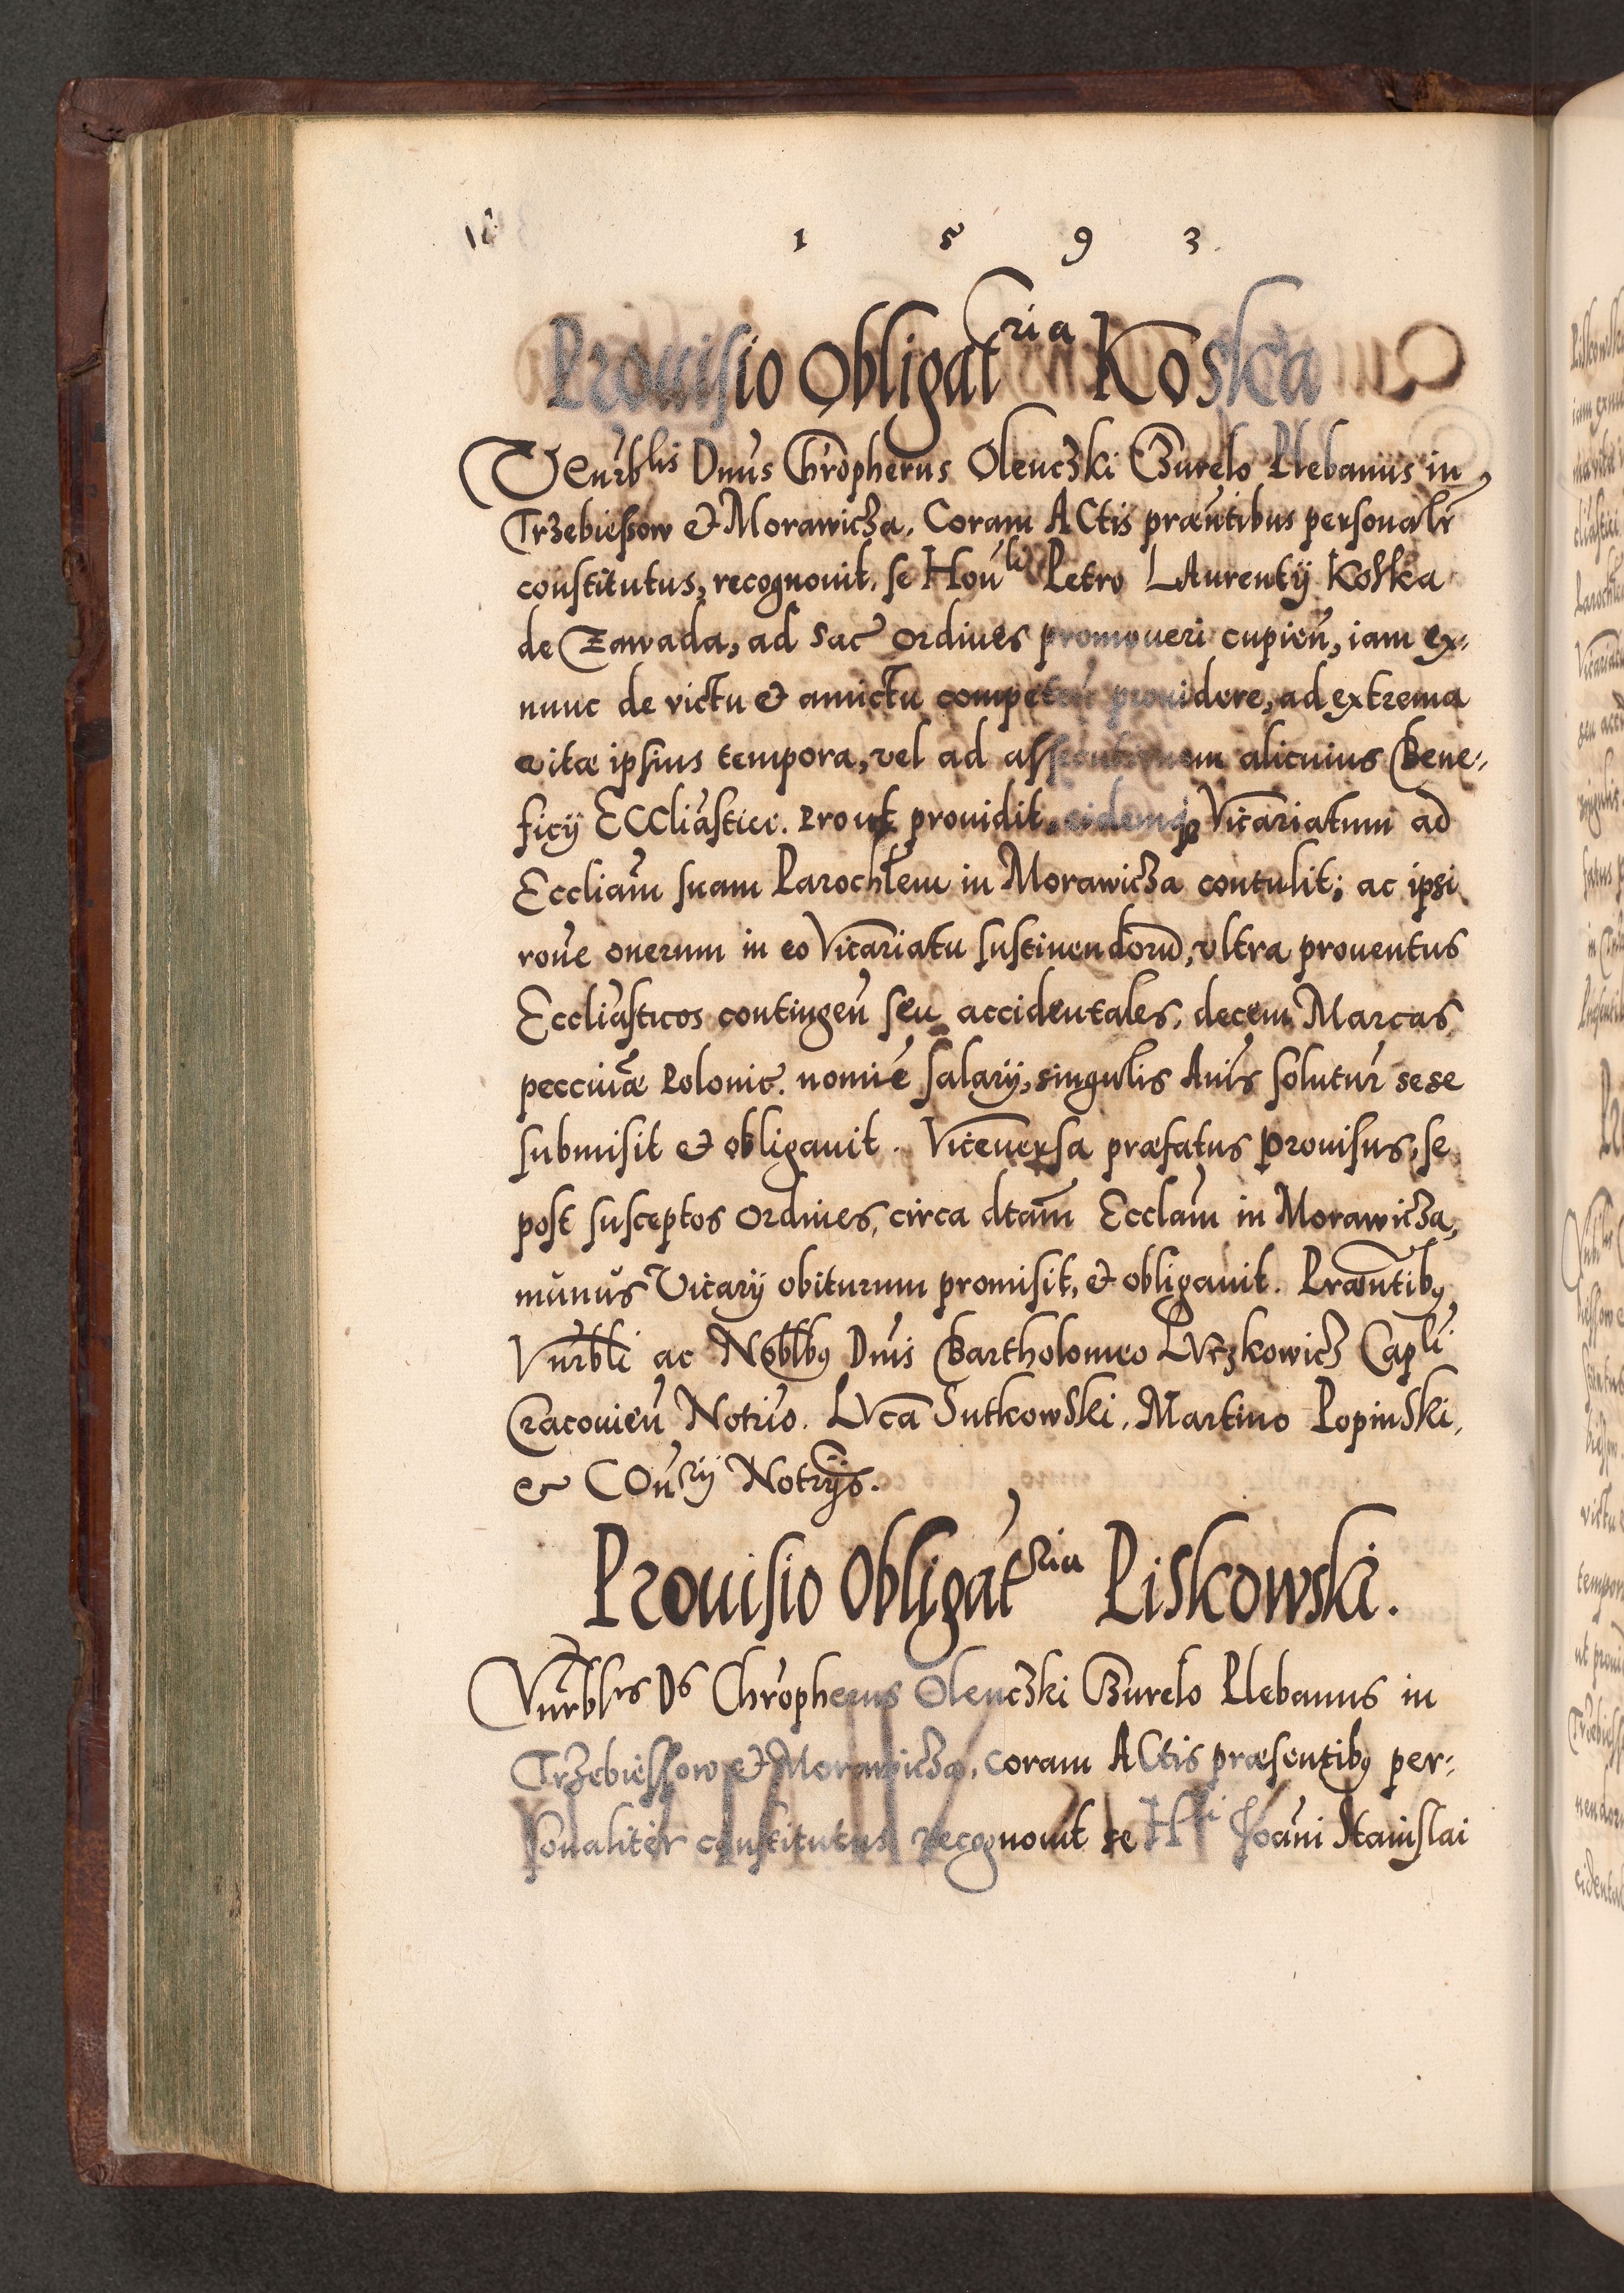 1 5 9 3.
Prouisio Obligatria Koska
Venrblis Dnus Chropherus Olenczki Czurelo Plebanus in
Trzebiessow & Morawicza. Coram ACtis præntibus personalr
constitutus, recognouit, se Honli Petro LAurentij Koska
de Zawada, ad sac ordines promoueri cupien, iam ex-
nunc de victu & amictu competen prouidere, ad extrema
vitæ ipsius tempora, vel ad assecutionem alicuius Bene-
ficij ECCliastici. Prout prouidit, eidemq Vicariatum ad
Eccliam suam Parochlem in Morawicza contulit; ac ipsi
rone onerum in eo Vicariatu sustinendoru, vltra prouentus
Eccliasticos contingen seu accidentales, decem Marcas
peccuiæ Polonic. nomie salarij, singulis Anis solutur sese
submisit & obligauit. Viceuersa præfatus prouisus, se
post susceptos ordines, circa dtam Ecclam in Morawicza,
munus Vicarij obiturum promisit, & obligauit. Præntibq
Vnrbli ac Noblbq Dnis Bartholomeo LVczkowicz Capli
Cracouien Notrio. LVca Sutkowski, Martino Popinski,
& COnrij Notrijs.
Prouisio Obligatria Piskowski.
Vnrblis Ds Chropherus Olenczki Czurelo Plebanus in
Trzebiessow & Morawicza, coram ACtis præsentibq per-
sonaliter constitutus recognouit se Hli Joani Stanislai